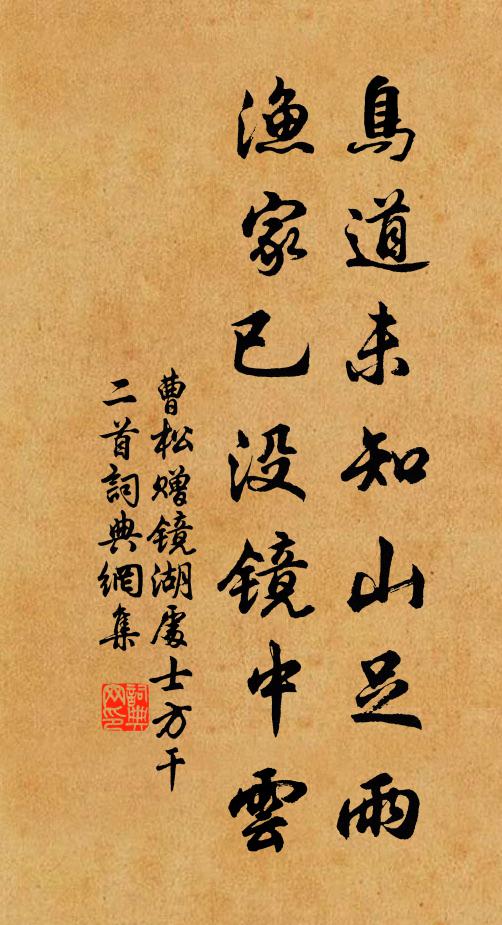 鳥道未知山足雨
漁家已没镜中雲
曹松赠镜湖處士方干
二首詞典網集
詞典
网印